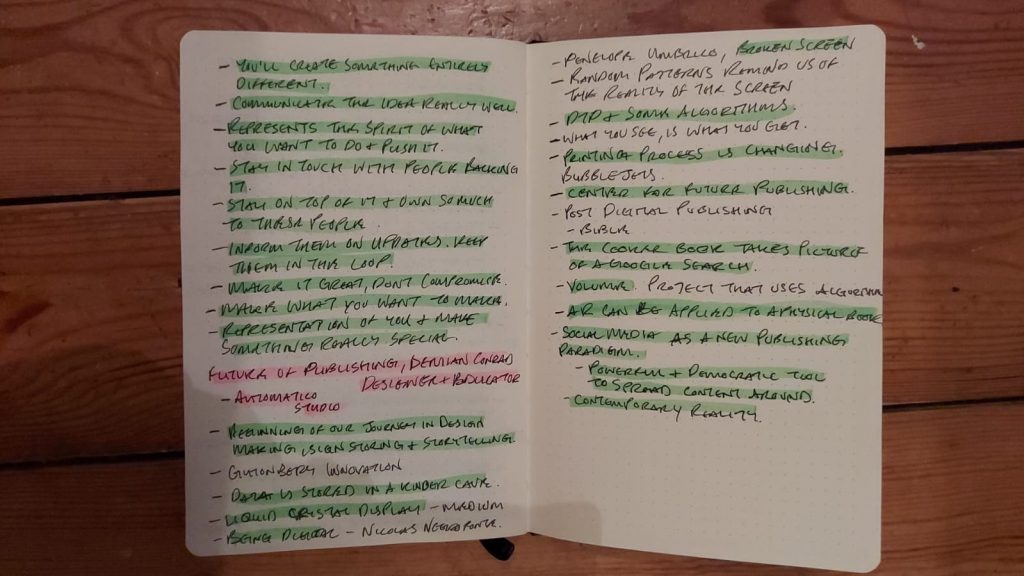 - YOU'LL CREATE SOMETHING ENTIRELY
DIFFERENT.
- COMMUNICATE THE IDEA REALLY WELL.
- REPRESENTS THE SPIRIT OF WHAT
YOU WANT TO DO & PUSH IT.
- STAY IN TOUCH WITH PEOPLE BACKING
IT.
- STAY ON TOP OF IT & OWN SO MUCH
TO THESE PEOPLE.
- INFORM THEM ON UPDATES. KEEP
THEM IN THE LOOP.
- MAKE IT GREAT, DONT COMPROMISE.
- MAKE WHAT YOU WANT TO MAKE.
- REPRESENTATION OF YOU & MAKE
SOMETHING REALLY SPECIAL.
FUTURE OF PUBLISHING, DEMIAN CONRAD
DESIGNER + EDUCATOR
- AUTOMATICO
STUDIO
- BEGINNING OF OUR JOURNEY IN DESIGN
MAKING IS STORING & STORYTELLING.
- GUTONBERY INNOVATION
- DATA IS STORED IN A KINDER CAVE.
- LIQUID CRISTAL DISPLAY - MEDIUM
- BEING DIGITAL - NICOLAS NEGROPONTE.
- PENELOPE UMBRICO, BROKEN SCREEN
- RANDOM PATTERNS REMIND US OF
THE REALITY OF THE SCREEN
- DTP & SOME ALGORITHMS.
- WHAT YOU SEE, IS WHAT YOU GET.
- PRINTING PROCESS IS CHANGING.
BUBBLEJETS.
- CENTER FOR FUTURE PUBLISHING.
- POST DIGITAL PUBLISHING
- BIBLE
- THE COOKER BOOK TAKES PICTURE
OF A GOOGLE SEARCH.
- VOLUME. PROJECT THAT USES ALGORITHM
- AR CAN BE APPLIED TO A PHYSICAL BOOK
- SOCIAL MEDIA AS A NEW PUBLISHING
PARADIGM.
- POWERFUL + DEMOCRATIC TOOL
TO SPREAD CONTENT AROUND.
- CONTEMPORARY REALITY.